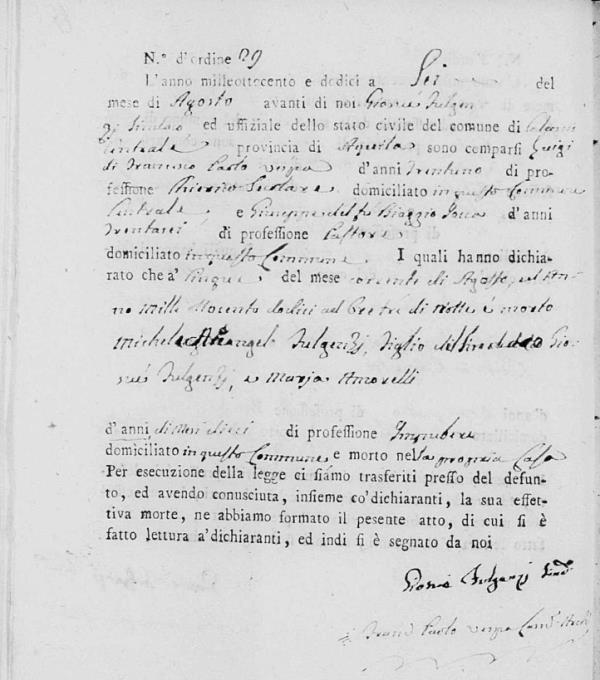 N.° d'ordine 29
L'anno milleottocento e dodici a Sei del
mese di Agosto avanti di noi Giosuè Fulgen
zj Sindaco, ed uffiziale dello stato civile del comune di
Centrale provincia di Aquila sono comparsi Luigi
di Francesco Paolo Vespa d'anni Trentuno di pro-
fessione domiciliato in questo Commune
Centrale, e Giuseppe del fu Biaggio d'anni
Trentasei di professione Pastore
domiciliato in questo Commune. I quali hanno dichia-
rato che a' Cinque del mese corrente di Agosto, ed An-
no Mille Ottocento dodici ad Ore tré di Notte é morto
Michele Arcangelo Fulgenzj, Figlio del Sindaco Gio-
sué Fulgenzj, e Maria Amorelli
d'anni, di Mesi dieci di professione Impubere
domiciliato in questo Commune e morto nella propria Casa
Per esecuzione della legge ci siámo trasferiti presso del defun-
to, ed avendo conusciuta, insieme co'dichiaranti, la sua effet-
tiva morte, ne abbiamo formato il pesente atto, di cui si è
fatto lettura a'dichiaranti, ed indi si è segnato da noi
Giosuè Fulgenzj Sind.
Franc. Paolo Vespa Canc.